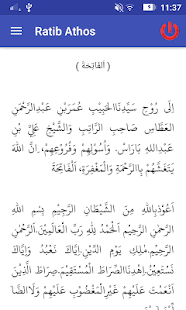 11:37
Ratib Athos
﴿ اَلْفَاتِحَةْ ﴾
اِلَى رُوْحِ سَيِّدِنَاالْحَبِيْبِ عُمَرَبْنِ عَبْدِالرَّحْمٰنِ
الْعَطَّاسِ صَاحِبِ الرَّاتِبِ وَالشَّيْخِ عَلِيِّ بْنِ
عَبْدِاللهِ بَارَاسْ. وَاُصُوْلِهِمْ وَفُرُوْعِهِمْ، اِنَّ اللهَ
يَتَغَشَّهُمْ بِالرَّحْمَةِ وَالْمَغْفِرَةِ، اَلْفَاتِحَةْ
اَعُوْذُبِاللهِ مِنَ الشَّيْطَانِ الرَّجِيْمِ بِسْمِ اللهِ
الرَّحْمٰنِ الرَّحِيْمِ اَلْحَمْدُ لِلّٰهِ رَبِّ الْعَالَمِيْنَ.اَلرَّحْمٰنِ
الرَّحِيْمِ.مٰلِكِ يَوْمِ الدِّيْنِ.اِيَّاكَ نَعْبُدُ وَاِيَّاكَ
نَسْتَعِيْنُ.اِهْدِنَاالصِّرَاطَ الْمُسْتَقِيْمَ.صِرَاطَ الَّذِيْنَ
اَنْعَمْتَ عَلَيْهِمْ غَيْرِالْمَغْضُوْبِ عَلَيْهِمْ وَلَاالضَّا